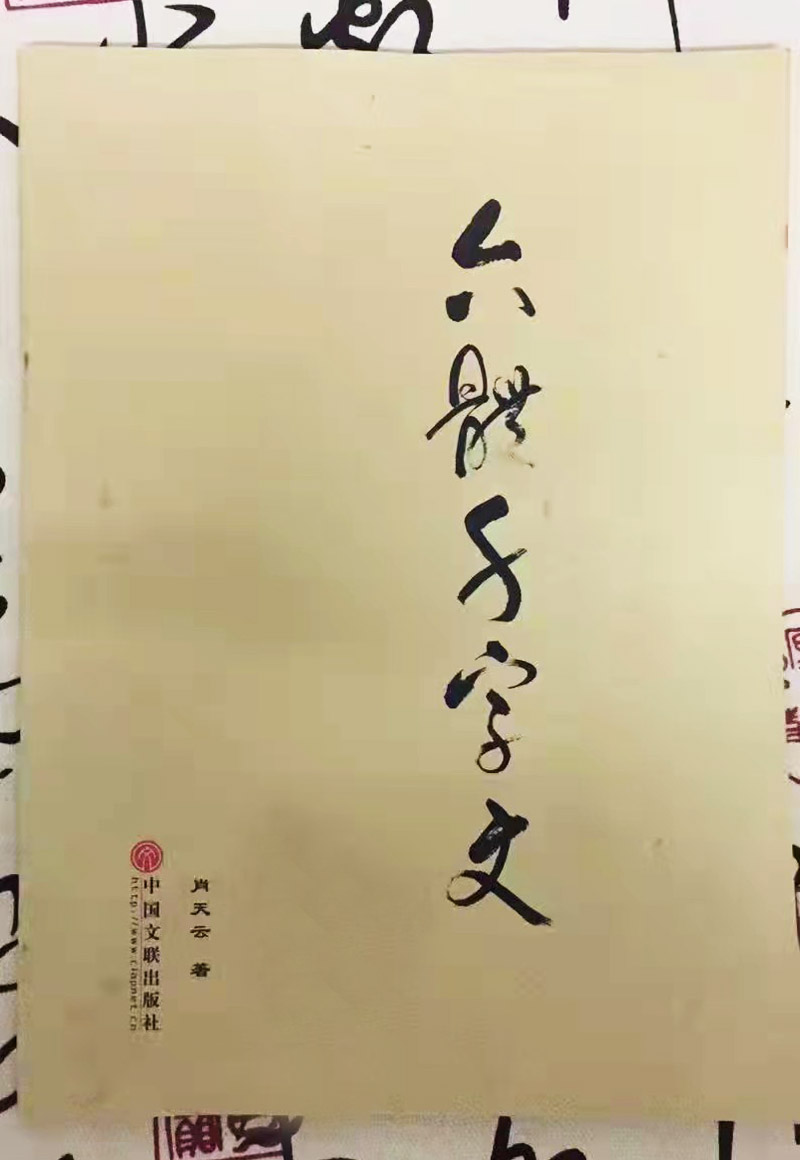 六體千字文
肖天云 著
中国文联出版社
http://www.clapnet.cn